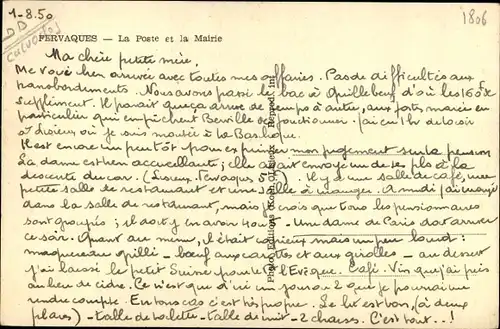 1-8.50
DB
Calvados
1806
FERVAQUES — La Poste et la Mairie
Ma chère petite mère,
Me voici bien arrivée avec toutes mes affaires. Pas de difficultés aux
transbordements. Nous avons passé le bac à Quillebeuf d'où les 160F de
supplément. Il parait que ça arrive de temps à autre, aux fortes marées en
particulier qui empêchent Berville de fonctionner. J'ai eu 1hr de loisir
à Lisieux où je suis montée à la Basilique.
Il est encore un peu tôt pour exprimer mon jugement sur la pension
La dame est bien accueillante ; elle avait envoyé un de ses fils à la
descente du car. (Lisieux. Fervaques ). Il y a une salle de café, une
petite salle de restaurant et une salle à manger. A midi j'ai mangé
dans la salle de restaurant, mais je crois que tous les pensionnaires
sont groupés ; il doit y en avoir . Une dame de Paris doit arriver
ce soir. Quant au menu, il était copieux mais un peu lourd :
maquereau grillé - bœuf aux carottes et aux girolles - au dessert
j'ai laissé le petit Suisse pour le P. l'Evêque. Café. Vin que j'ai pris
au lieu de cidre. Ce n'est qu'un jour ou 2 que je pourrai me
rendre compte. En tous cas c'est très propre. Le lit est bon, (à deux
places) - table de toilette - table de nuit - 2 chaises. C'est tout..!
Photo Editions Lisieux Reprod. Int.